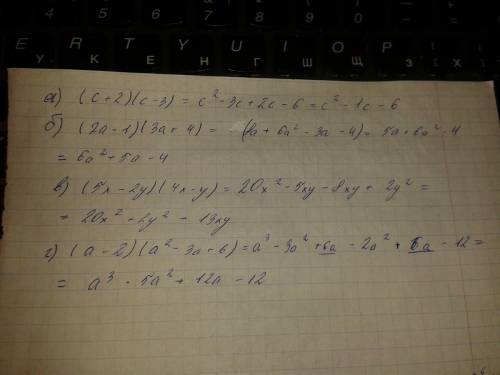 4 6 7 8 9 0 - =
E R T Y U I O P
У К Е Н Г Ш Щ З Х
а) (c+2)(c-3) = c²-3c+2c-6 = c²-1c-6
б) (2a-1)(3a+4) = (8a+6a²-3a-4) = 5a+6a²-4
= 6a²+5a-4
в) (5x-2y)(4x-y) = 20x²-5xy-8xy+2y² =
= 20x²+2y²-13xy
г) (a-2)(a²-3a+6) = a³-3a²+6a-2a²+6a-12 =
= a³-5a²+12a-12